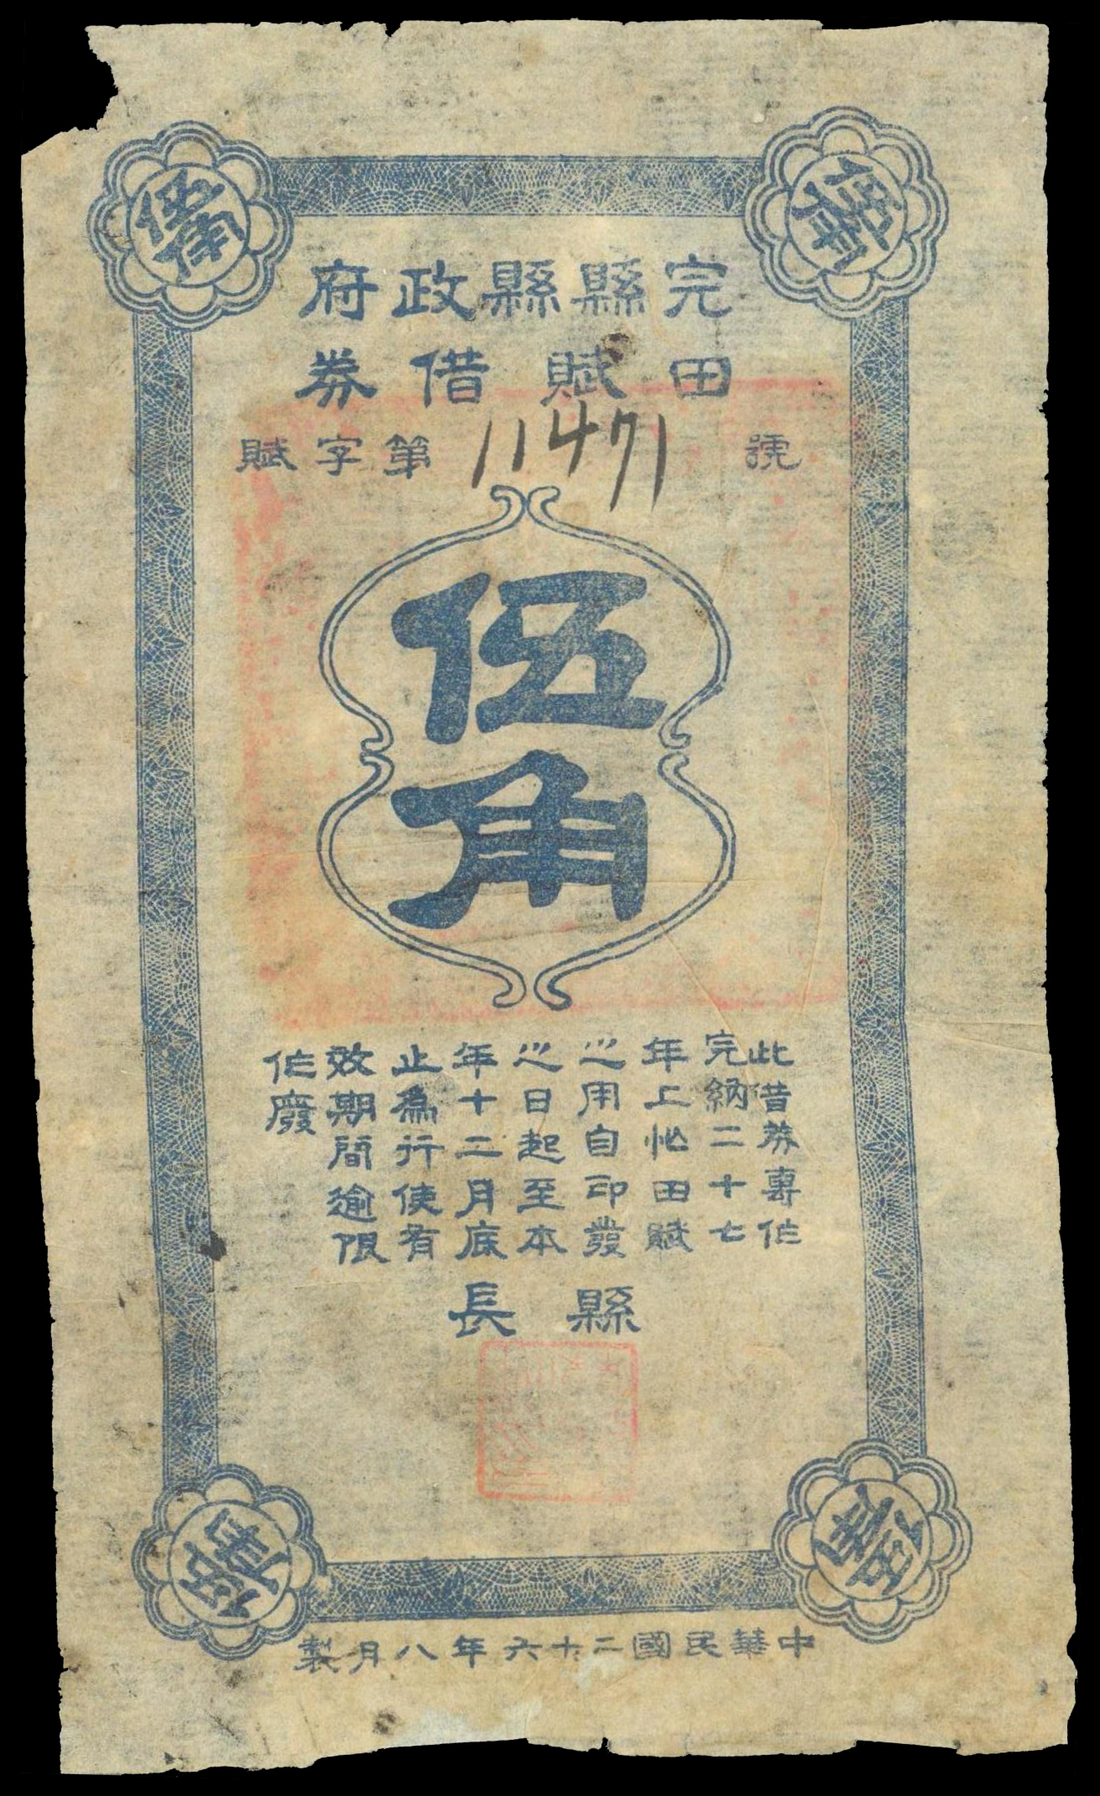 伍角
伍角
完縣縣政府
田賦借券
賦字第 11471 號
伍角
此借券專作
完納二十七
年上忙田賦
之用自印發
之日起至本
年十二月底
止為行使有
效期間逾限
作廢
縣長
伍角
伍角
中華民國二十六年八月製